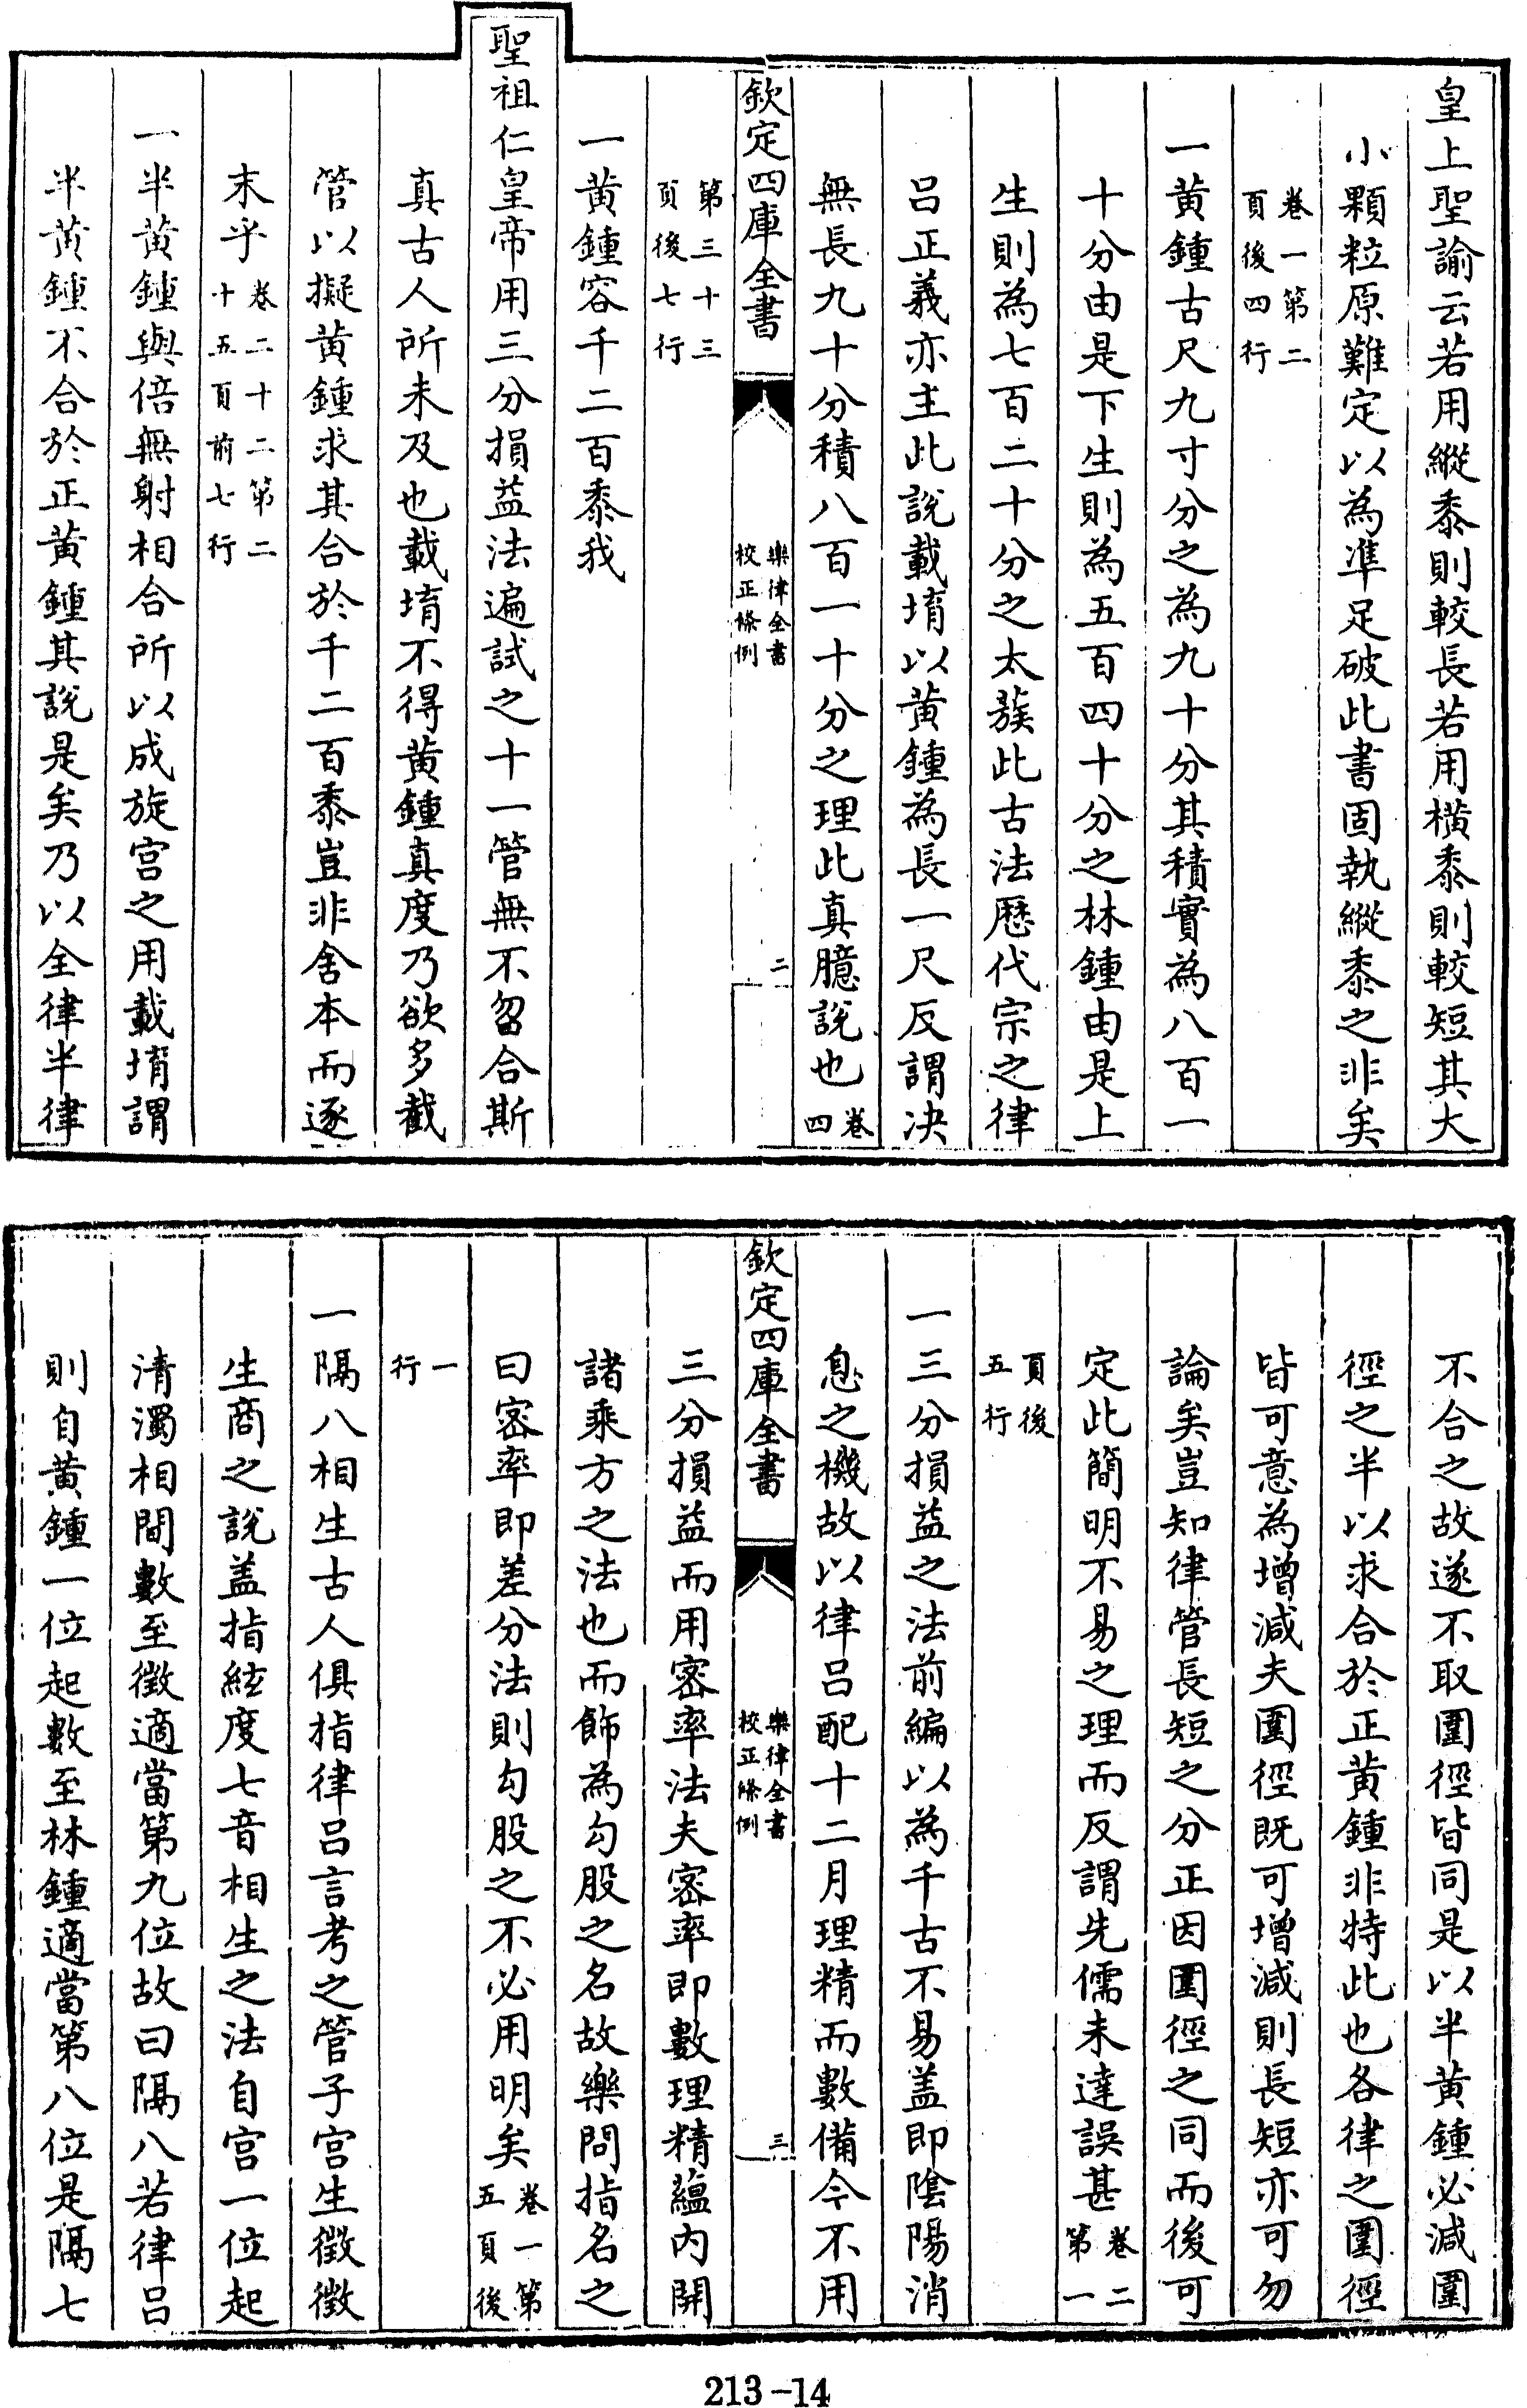 皇上聖諭云若用縱黍則較長若用橫黍則較短其大
小顆粒原難定以為準足破此書固執縱黍之非矣
卷一第二
頁後四行
一黃鍾古尺九寸分之為九十分其積實為八百一
十分由是下生則為五百四十分之林鍾由是上
生則為七百二十分之太蔟此古法歷代宗之律
呂正義亦主此說載堉以黃鍾為長一尺反謂决
無長九十分積八百一十分之理此真臆說也卷
四
欽定四庫全書
樂律全書
校正條例
二
第三十三
頁後七行
一黃鍾容千二百黍我
聖祖仁皇帝用三分損益法遍試之十一管無不曶合斯
真古人所未及也載堉不得黃鍾真度乃欲多截
管以擬黃鍾求其合於千二百黍豈非舍本而逐
末乎卷二十二第二
十五頁前七行
一半黃鍾與倍無射相合所以成旋宫之用載堉謂
半黃鍾不合於正黃鍾其說是矣乃以全律半律
不合之故遂不取圍徑皆同是以半黃鍾必減圍
徑之半以求合於正黃鍾非特此也各律之圍徑
皆可意為增減夫圍徑既可增減則長短亦可勿
論矣豈知律管長短之分正因圍徑之同而後可
定此簡明不易之理而反謂先儒未達誤甚卷二
第一
頁後
五行
一三分損益之法前編以為千古不易盖即陰陽消
息之機故以律呂配十二月理精而數備今不用
欽定四庫全書
樂律全書
校正條例
三
三分損益而用密率法夫密率即數理精蘊內開
諸乘方之法也而飾為勾股之名故樂問指名之
曰密率即差分法則勾股之不必用明矣卷一第
五頁後
一
行
一隔八相生古人俱指律呂言考之管子宫生徵徵
生商之說盖指絃度七音相生之法自宫一位起
清濁相間數至徵適當第九位故曰隔八若律呂
則自黃鍾一位起數至林鍾適當第八位是隔七
213-14